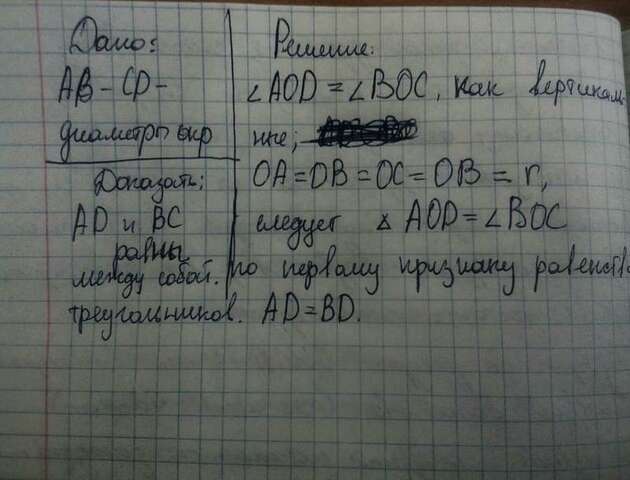 Дано:
AB - CD -
диаметры окр
Доказать:
AD и BC
равны
между собой.
Решение:
∠AOD = ∠BOC, как вертикаль-
ные;
OA = OB = OC = OB = r,
следует ∆ AOD = ∠BOC
по первому признаку равенства
треугольников. AD = BD.